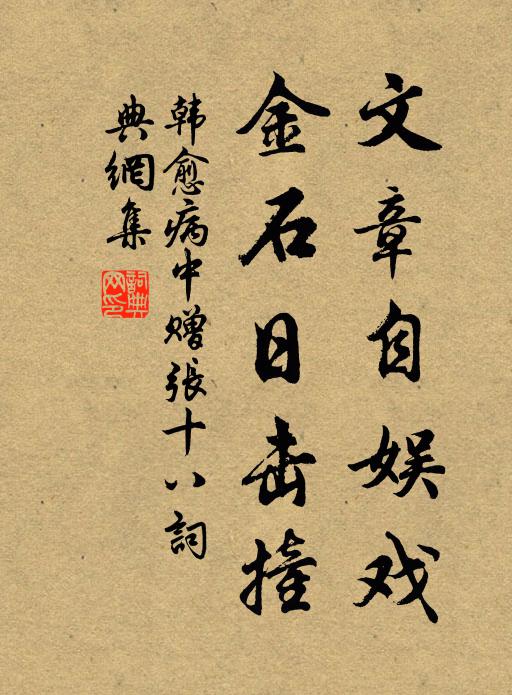 文章自娱戏
金石日击撞
韩愈病中赠張十八詞
典網集
詞典网印